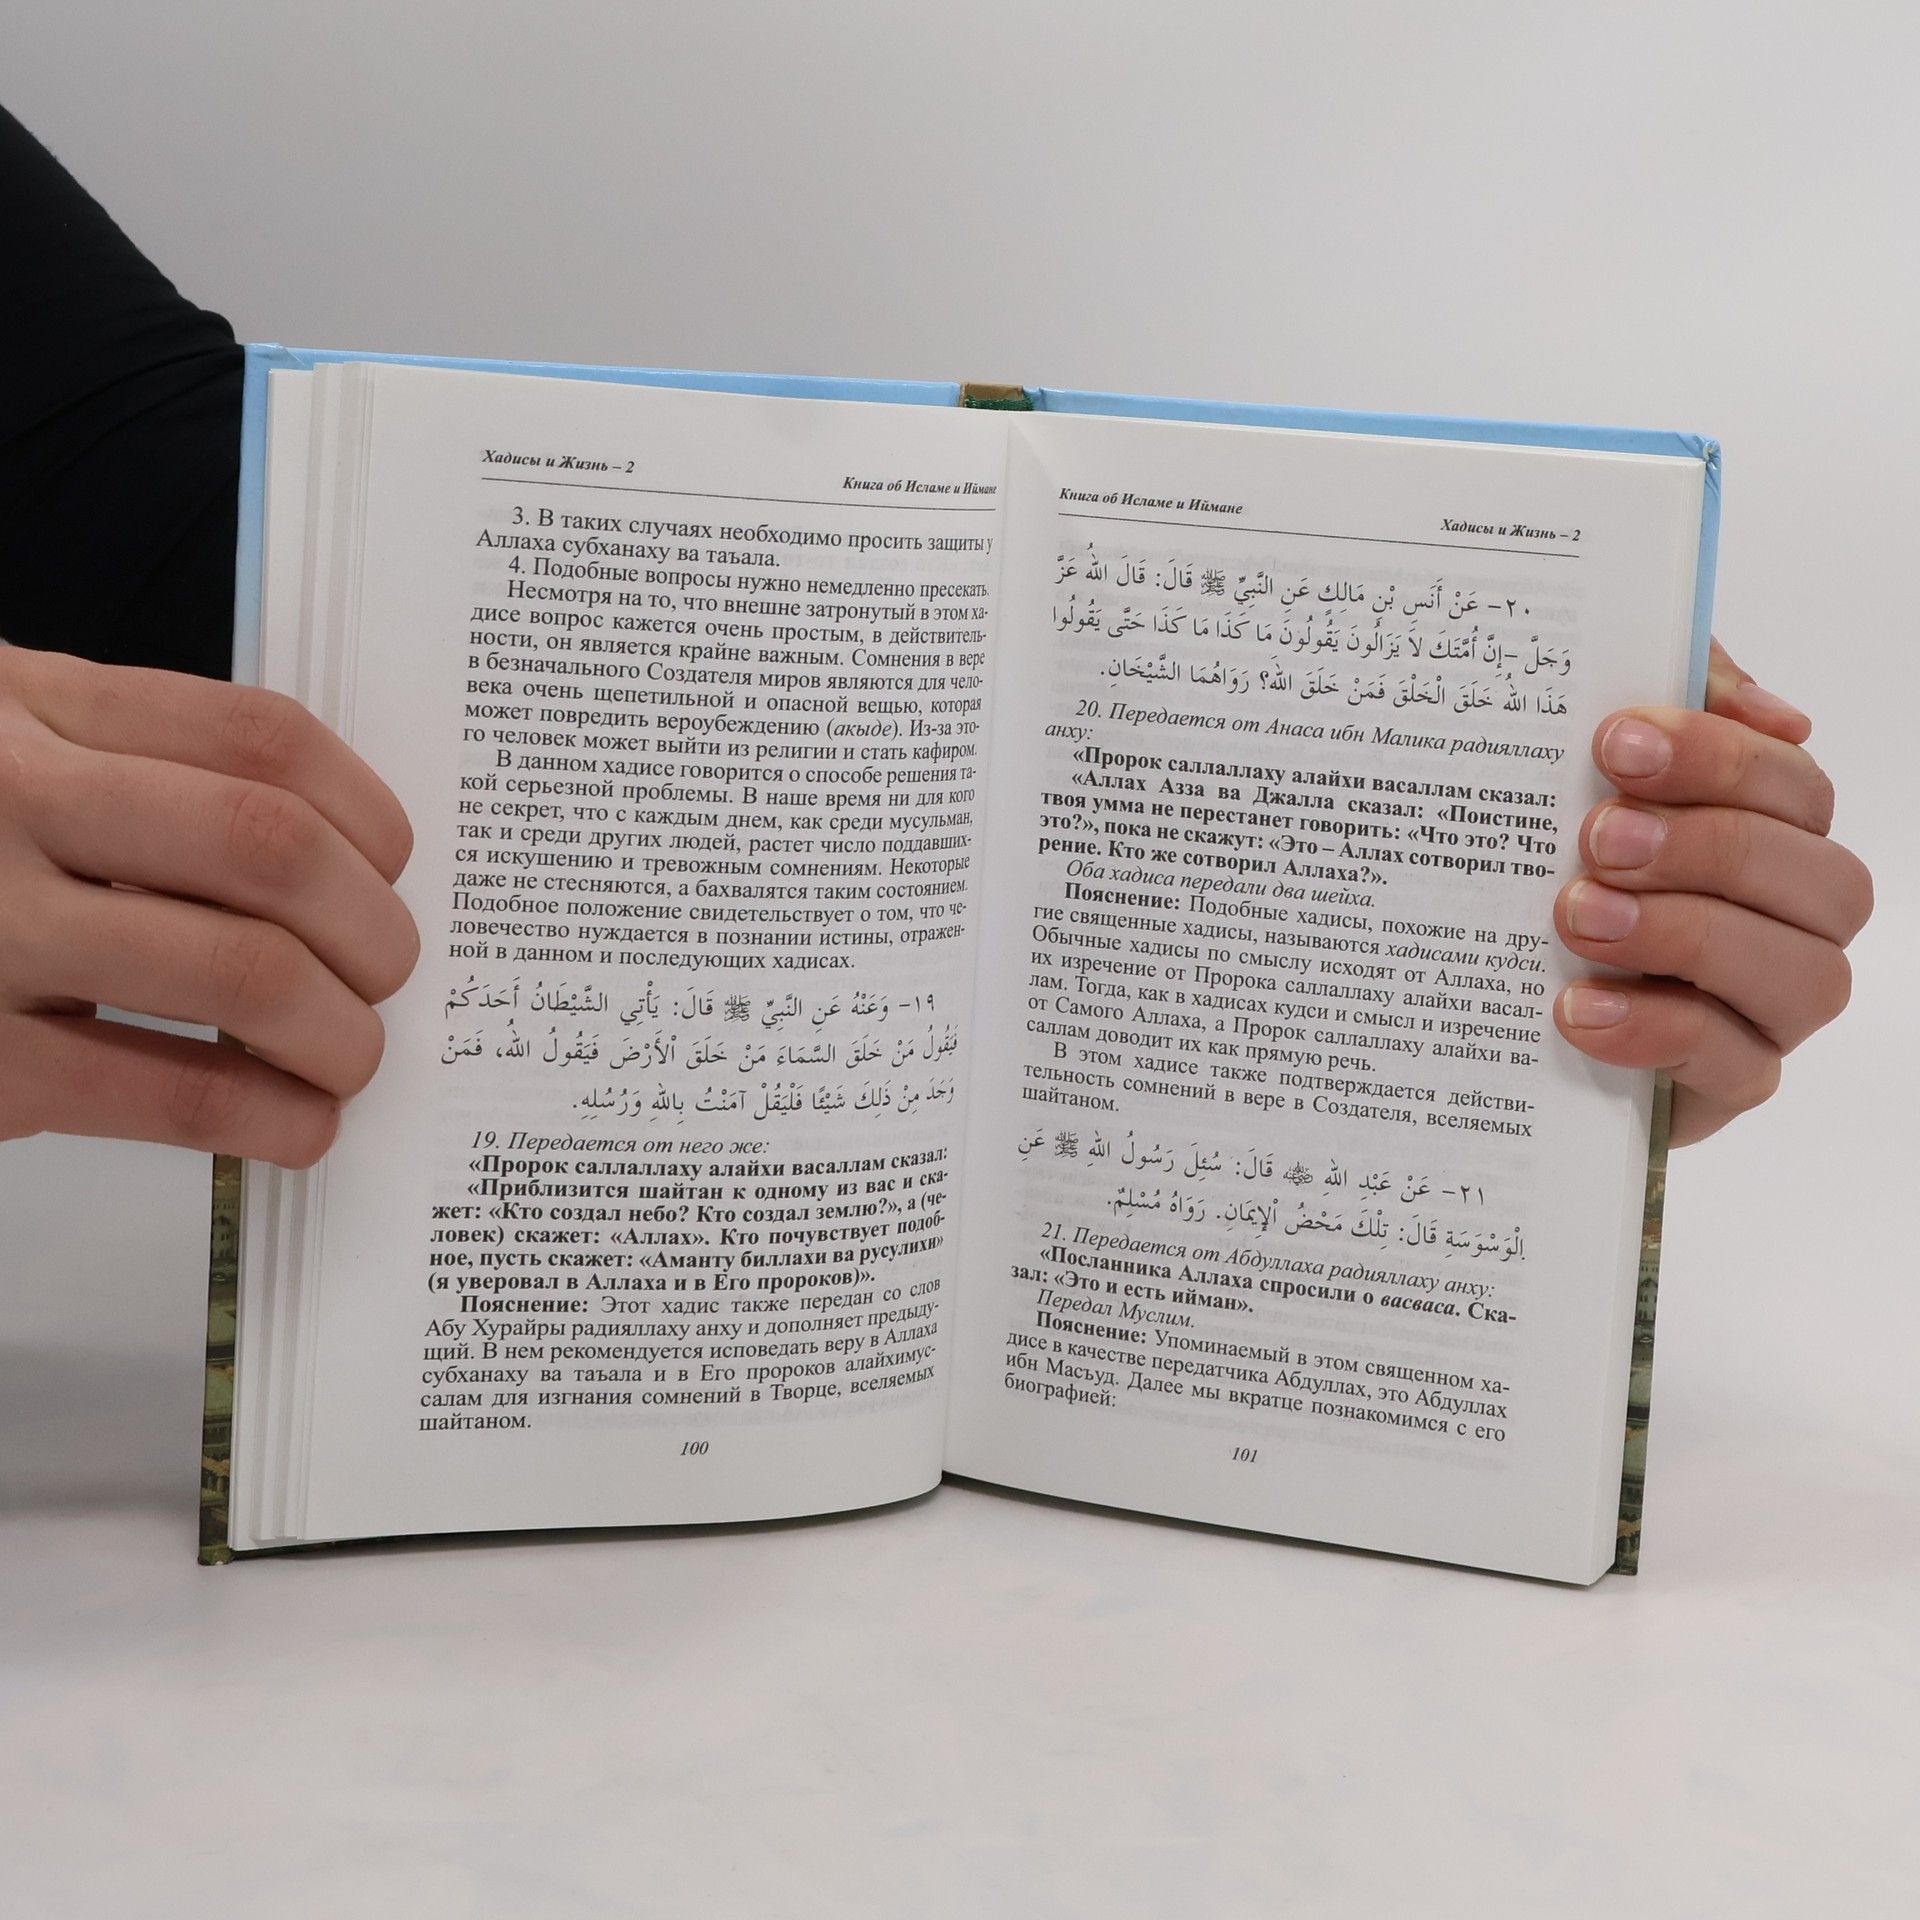 Хадисы и Жизнь – 2
Книга об Исламе и Иймане
3. В таких случаях необходимо просить защиты у
Аллаха субханаху ва таъала.
4. Подобные вопросы нужно немедленно пресекать.
Несмотря на то, что внешне затронутый в этом ха-
дисе вопрос кажется очень простым, в действитель-
ности, он является крайне важным. Сомнения в вере
в безначального Создателя миров являются для чело-
века очень щепетильной и опасной вещью, которая
может повредить вероубеждению (акыде). Из-за это-
го человек может выйти из религии и стать кафиром.
В данном хадисе говорится о способе решения та-
кой серьезной проблемы. В наше время ни для кого
не секрет, что с каждым днем, как среди мусульман,
так и среди других людей, растет число поддавших-
ся искушению и тревожным сомнениям. Некоторые
даже не стесняются, а бахвалятся таким состоянием.
Подобное положение свидетельствует о том, что че-
ловечество нуждается в познании истины, отражен-
ной в данном и последующих хадисах.
١٩- وَعَنْهُ عَنِ النَّبِيِّ ﷺ قَالَ: يَأْتِي الشَّيْطَانُ أَحَدَكُمْ
فَيَقُولُ مَنْ خَلَقَ السَّمَاءَ مَنْ خَلَقَ الْأَرْضَ فَيَقُولُ اللهُ، فَمَنْ
وَجَدَ مِنْ ذَلِكَ شَيْئًا فَلْيَقُلْ آمَنْتُ بِاللهِ وَرُسُلِهِ.
19. Передается от него же:
«Пророк саллаллаху алайхи васаллам сказал:
«Приблизится шайтан к одному из вас и ска-
жет: «Кто создал небо? Кто создал землю?», а (че-
ловек) скажет: «Аллах». Кто почувствует подоб-
ное, пусть скажет: «Аманту биллахи ва русулихи»
(я уверовал в Аллаха и в Его пророков)».
Пояснение: Этот хадис также передан со слов
Абу Хурайры радияллаху анху и дополняет предыду-
щий. В нем рекомендуется исповедать веру в Аллаха
субханаху ва таъала и в Его пророков алайхимус-
салам для изгнания сомнений в Творце, вселяемых
шайтаном.
100
Книга об Исламе и Иймане
Хадисы и Жизнь – 2
٢٠- عَنْ أَنَسِ بْنِ مَالِكٍ عَنِ النَّبِيِّ ﷺ قَالَ: قَالَ اللهُ عَزَّ
وَجَلَّ -إِنَّ أُمَّتَكَ لاَ يَزَالُونَ يَقُولُونَ مَا كَذَا مَا كَذَا حَتَّى يَقُولُوا
هَذَا اللهُ خَلَقَ الْخَلْقَ فَمَنْ خَلَقَ اللهَ؟ رَوَاهُمَا الشَّيْخَانِ.
20. Передается от Анаса ибн Малика радияллаху
анху:
«Пророк саллаллаху алайхи васаллам сказал:
«Аллах Азза ва Джалла сказал: «Поистине,
твоя умма не перестанет говорить: «Что это? Что
это?», пока не скажут: «Это – Аллах сотворил тво-
рение. Кто же сотворил Аллаха?».
Оба хадиса передали два шейха.
Пояснение: Подобные хадисы, похожие на дру-
гие священные хадисы, называются хадисами кудси.
Обычные хадисы по смыслу исходят от Аллаха, но
их изречение от Пророка саллаллаху алайхи васал-
лам. Тогда, как в хадисах кудси и смысл и изречение
от Самого Аллаха, а Пророк саллаллаху алайхи ва-
саллам доводит их как прямую речь.
В этом хадисе также подтверждается действи-
тельность сомнений в вере в Создателя, вселяемых
шайтаном.
٢١- عَنْ عَبْدِ اللهِ قَالَ: سُئِلَ رَسُولُ اللهِ ﷺ عَنِ
الْوَسْوَسَةِ قَالَ: تِلْكَ مَحْضُ الْإِيمَانِ. رَوَاهُ مُسْلِمٌ.
21. Передается от Абдуллаха радияллаху анху:
«Посланника Аллаха спросили о васваса. Ска-
зал: «Это и есть ийман».
Передал Муслим.
Пояснение: Упоминаемый в этом священном ха-
дисе в качестве передатчика Абдуллах, это Абдуллах
ибн Масъуд. Далее мы вкратце познакомимся с его
биографией:
101